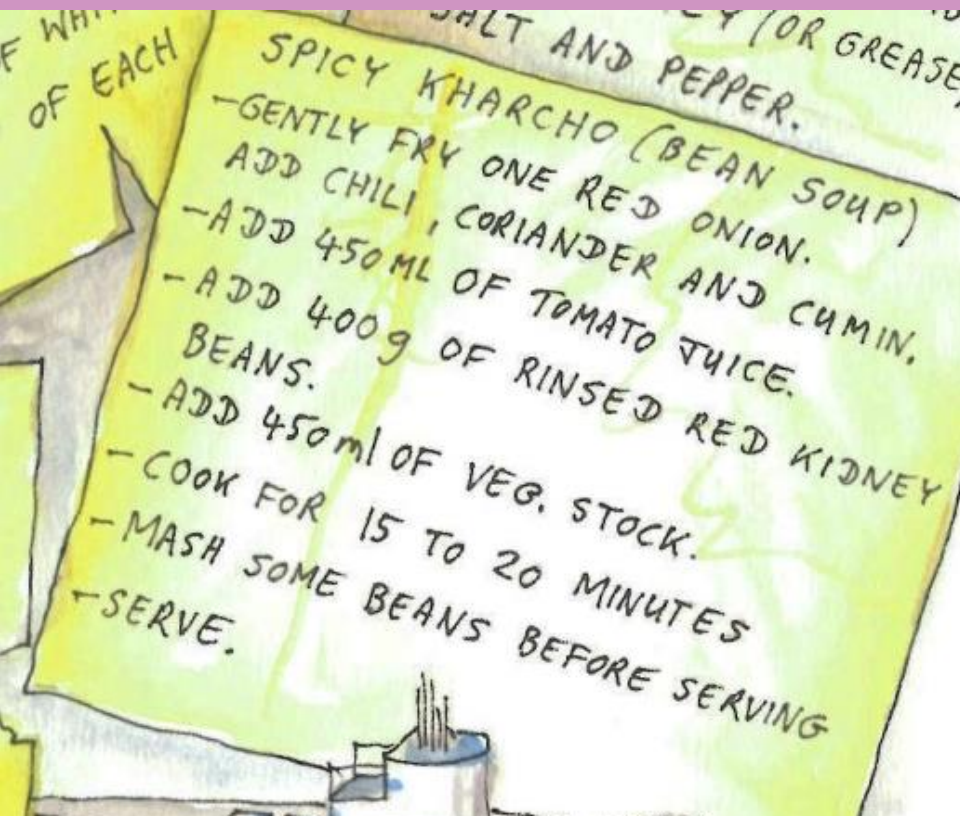 OF EACH
SALT AND PEPPER.
(OR GREASE
SPICY KHARCHO (BEAN SOUP)
-GENTLY FRY ONE RED ONION.
ADD CHILI, CORIANDER AND CUMIN.
-ADD 450ML OF TOMATO JUICE.
-ADD 400g OF RINSED RED KIDNEY
BEANS.
-ADD 450ml OF VEG. STOCK.
-COOK FOR 15 TO 20 MINUTES
-MASH SOME BEANS BEFORE SERVING
-SERVE.